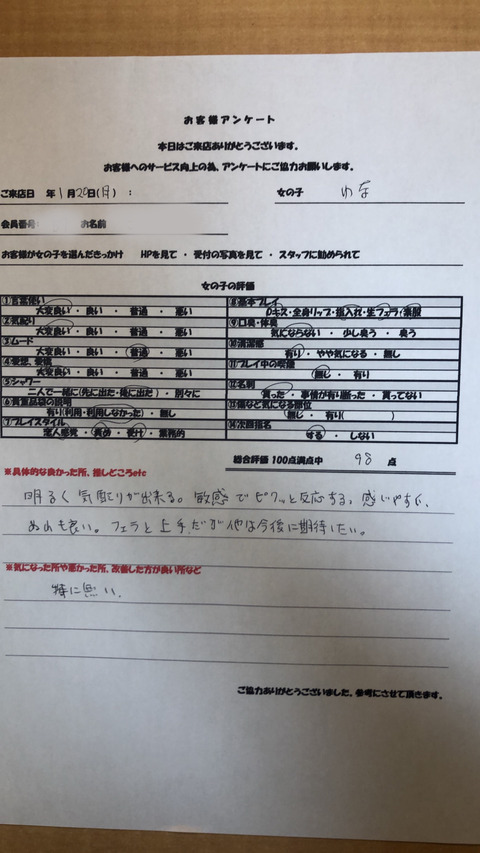 お客様アンケート
本日はご来店ありがとうございます。
お客様へのサービス向上の為、アンケートにご協力お願いします。
ご来店日 年 1月20日(月) : 女の子 ゆな
会員番号: お名前
お客様が女の子を選んだきっかけ HPを見て ・ 受付の写真を見て ・ スタッフに勧められて
女の子の評価
①言葉使い
大変良い ・ 良い ・ 普通 ・ 悪い
②気配り
大変良い ・ 良い ・ 普通 ・ 悪い
③ムード
大変良い ・ 良い ・ 普通 ・ 悪い
④愛想、愛嬌
大変良い ・ 良い ・ 普通 ・ 悪い
⑤シャワー
二人で一緒に(先に出た・後に出た) ・ 別々に
⑥貴重品袋の説明
有り(利用・利用しなかった) ・ 無し
⑦プレイスタイル
恋人感覚 ・ 責め ・ 受け ・ 業務的
⑧基本プレイ
Dキス・全身リップ・指入れ・生フェラ・素股
⑨口臭・体臭
気にならない ・ 少し臭う ・ 臭う
⑩清潔感
有り ・ やや気になる ・ 無し
⑪プレイ中の喫煙
無し ・ 有り
⑫名刺
貰った ・ 事情が有り断った ・ 貰ってない
⑬傷など気になる部位
無し ・ 有り( )
⑭次回指名
する ・ しない
総合評価 100点満点中 98 点
※具体的な良かった所、推しどころetc
明るく気配りが出来る。敏感でビクッと反応する。感じやすく、
も良い。フェラも上手だが他は今後に期待したい。
※気になった所や悪かった所、改善した方が良い所など
特に無い、
ご協力ありがとうございました。参考にさせて頂きます。